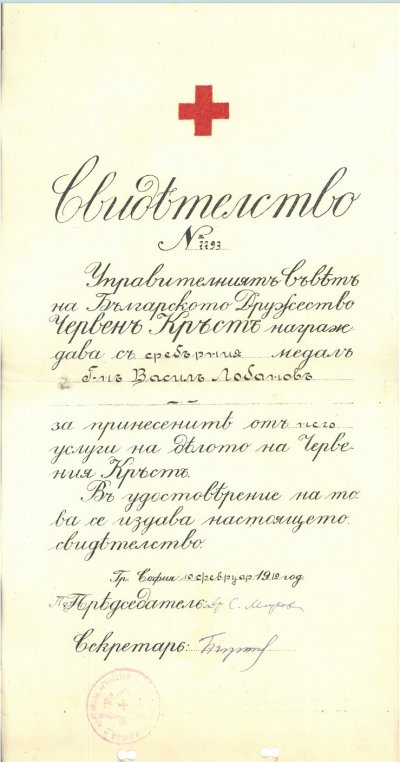 Свидѣтелство
№ 7793
Управителниятъ Съвѣтъ
на Българското Дружество
Червенъ Кръстъ награж
дава съ сребърния медалъ
Г-нъ Василъ Лобановъ
за принесенитѣ отъ него
услуги на дѣлото на Черве-
ния Кръстъ.
Въ удостовѣрение на то-
ва се издава настоящето
свидѣтелство.
Гр. София 10 февруар 1919 год.
Прѣдседатель:
Секретарь: